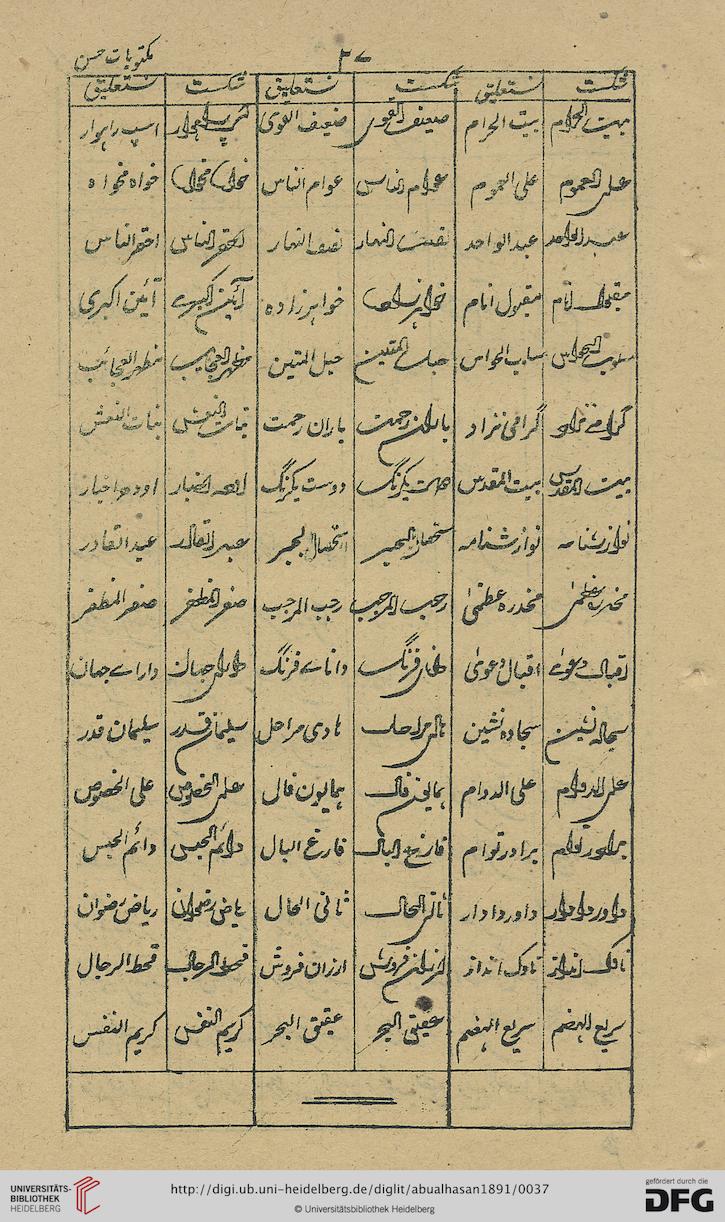 ۳۷ مکتوبات حسن
شکست نستعلیق شکست نستعلیق شکست نستعلیق
بیت الحرام بیت الحرام ضعیف القوی ضعیف القوی اسپ راہوار اسپ راہوار
علی العموم علی العموم عوام الناس عوام الناس خواہ مخواہ خواہ مخواہ
عبد الواحد عبد الواحد نصف النہار نصف النہار احقر الناس احقر الناس
مقبول انام مقبول انام خواہر زادہ خواہر زادہ آئین اکبری آئین اکبری
سلوب الحواس سلوب الحواس حبل المتین حبل المتین مظہر العجائب مظہر العجائب
گرامی نژاد گرامی نژاد باران رحمت باران رحمت بنات النعش بنات النعش
بیت المقدس بیت المقدس دوست یکرنگ دوست یکرنگ اودھ اخبار اودھ اخبار
نوازشنامہ نوازشنامہ استحصال بالجبر استحصال بالجبر عبد القادر عبد القادر
مخدرہ عظمیٰ مخدرہ عظمیٰ رجب المرجب رجب المرجب صفر المظفر صفر المظفر
اقبال دعویٰ اقبال دعویٰ داناے فرنگ داناے فرنگ داراے جہان داراے جہان
سجادہ نشین سجادہ نشین ہادی مراحل ہادی مراحل سلیمان قدر سلیمان قدر
علی الدوام علی الدوام ہمایون فال ہمایون فال علی الخصوص علی الخصوص
برادر توام برادر توام فارغ البال فارغ البال دائم الحبس دائم الحبس
داور دادار داور دادار ثانی الحال ثانی الحال ریاض رضوان ریاض رضوان
ناوک انداز ناوک انداز ارزان فروش ارزان فروش قحط الرجال قحط الرجال
سریع الہضم سریع الہضم عقیق البحر عقیق البحر کریم النفس کریم النفس
UNIVERSITÄTS-
BIBLIOTHEK
HEIDELBERG
http://digi.ub.uni-heidelberg.de/diglit/abualhasan1891/0037
© Universitätsbibliothek Heidelberg
gefördert durch die
DFG